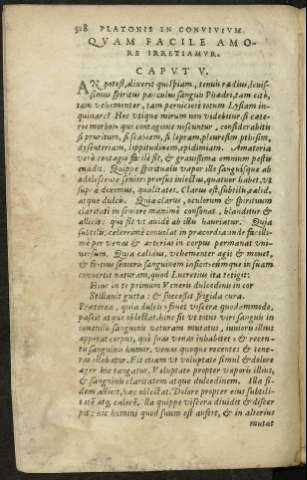 528 PLATONIS IN CONVIVIVM.
QVAM FACILE AMO-
RE IRRETIAMVR.
CAPVT V.
AN potest, dixerit quispiam, tenuis radius, leuis-
simus spiritus, pauculus sanguis Phædri, tam citò,
tam vehementer, tam perniciosè totum Lysiam in-
quinare? Hoc vtique mirum non videbitur, si cæte-
ros morbos qui contagione nascuntur, considerabitis
vt pruritum, scabiem, lepram, pleuresim, ptisim,
dysenteriam, lippitudinem, epidimiam. Amatoria
verò contagio facilè fit, & grauissima omnium pestis
euadit. Quippe spiritualis vapor ille sanguisque ab
adolescente seniori præfixo infectus, quatuor habet, vt
suprà diximus, qualitates. Clarus est, subtilis, calid.
atque dulcis. Quia clarus, oculorum & spirituum
claritati in seniore maximè consonat, blanditur &
allicit: quo fit vt auidè ab illis hauriatur. Quia
subtilis, celerrimè conuolat in præcordia: inde facilli-
mè per venas & arterias in corpus permanat vni-
uersum. Quia calidus, vehementer agit & mouet,
& hominis senioris sanguinem inficit: eumque in suam
conuertit naturam, quod Lucretius ita tetigit:
Hinc in te primum Veneris dulcedinis in cor
Stillauit gutta: & successit frigida cura.
Præterea, quia dulcis, fouet viscera quodammodo,
pascit atque oblectat. hinc fit vt totus viri sanguis in
iuuenilis sanguinis naturam mutatus, iunioris illius
appetat corpus, quò suas venas inhabitet: & recen-
tis sanguinis humor, venas quoque recentes & tene-
ras illabatur. Fit etiam vt voluptate simul & dolore
æger hic tangatur. Voluptate propter vaporis illius,
& sanguinis claritatem atque dulcedinem. Illa si-
dem allicit, hæc oblectat. Dolore propter eius subtili-
tatē atq; calorē. Illa quippe viscera diuidit & discer
pit: hic homini quod suum est aufert, & in alterius
mutat